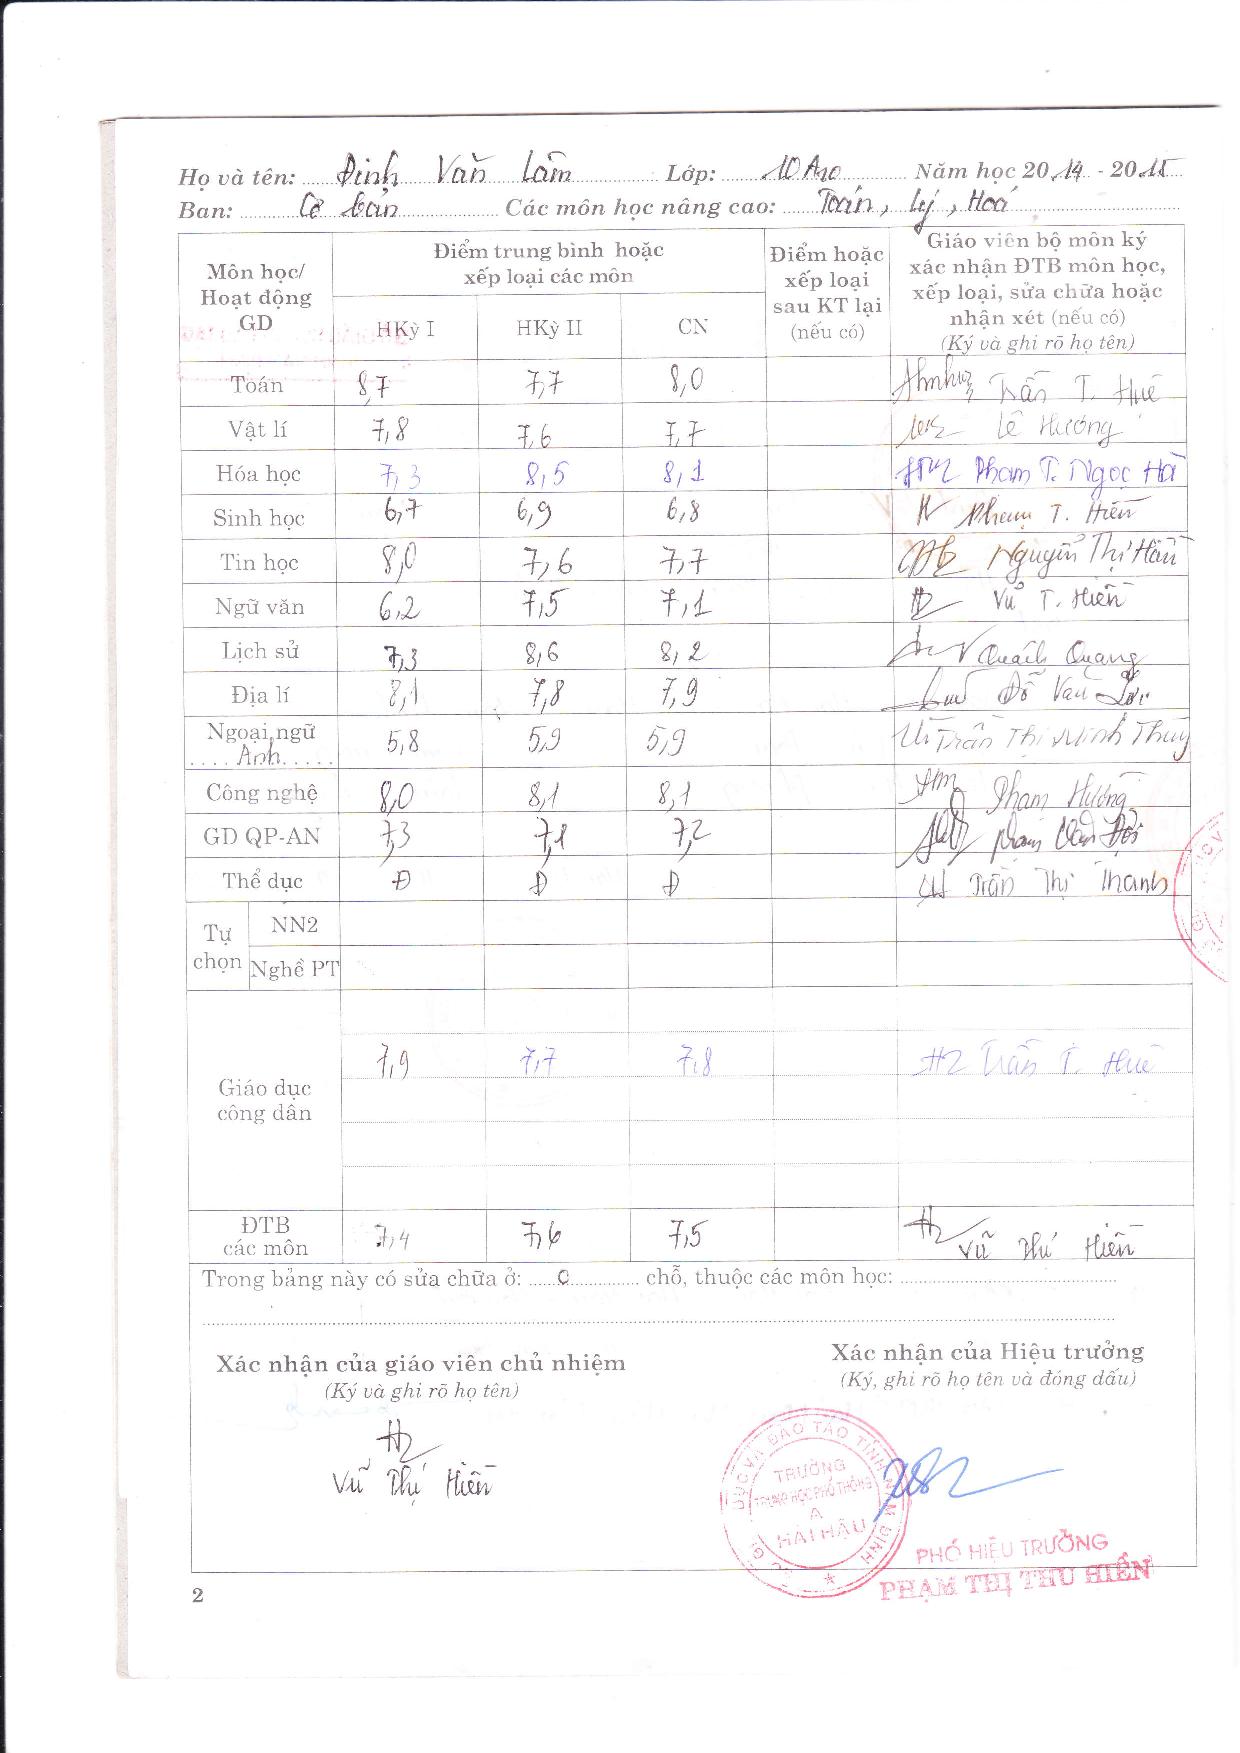 Họ và tên: Đinh Văn Lâm Lớp: 10A10 Năm học 2014 - 2015
Ban: Cơ bản Các môn học nâng cao: Toán, Lý, Hoá
Môn học/ Hoạt động GD
Điểm trung bình hoặc xếp loại các môn
Điểm hoặc xếp loại sau KT lại (nếu có)
Giáo viên bộ môn ký xác nhận ĐTB môn học, xếp loại, sửa chữa hoặc nhận xét (nếu có) (Ký và ghi rõ họ tên)
HKỳ I HKỳ II CN
Toán 8,7 7,7 8,0 Trần T. Huê
Vật lí 7,8 7,6 7,7 Lê Hương
Hóa học 7,3 8,5 8,1 Phạm T. Ngọc Hà
Sinh học 6,7 6,9 6,8 Phạm T. Hiền
Tin học 8,0 7,6 7,7 Nguyễn Thị Hân
Ngữ văn 6,2 7,5 7,1 Vũ T. Hiền
Lịch sử 7,3 8,6 8,2 Quách Quang
Địa lí 8,1 7,8 7,9 Đỗ Văn
Ngoại ngữ
.... Anh..... 5,8 5,9 5,9 Trần Thị Minh Thuỳ
Công nghệ 8,0 8,1 8,1 Phạm Hường
GD QP-AN 7,3 7,1 7,2 Phạm Văn
Thể dục Đ Đ Đ Trần Thị Thanh
Tự chọn
NN2
Nghề PT
7,9 7,7 7,8 Trần T. Huê
Giáo dục
công dân
ĐTB
các môn 7,4 7,6 7,5 Vũ Thị Hiền
Trong bảng này có sửa chữa ở: 0 chỗ, thuộc các môn học:
Xác nhận của giáo viên chủ nhiệm
(Ký và ghi rõ họ tên)
Vũ Thị Hiền
Xác nhận của Hiệu trưởng
(Ký, ghi rõ họ tên và đóng dấu)
ĐÀO TẠO TỈNH NAM ĐỊNH
TRƯỜNG
TRUNG HỌC PHỔ THÔNG
A
HẢI HẬU
PHÓ HIỆU TRƯỞNG
PHẠM THỊ THU HIỀN
2